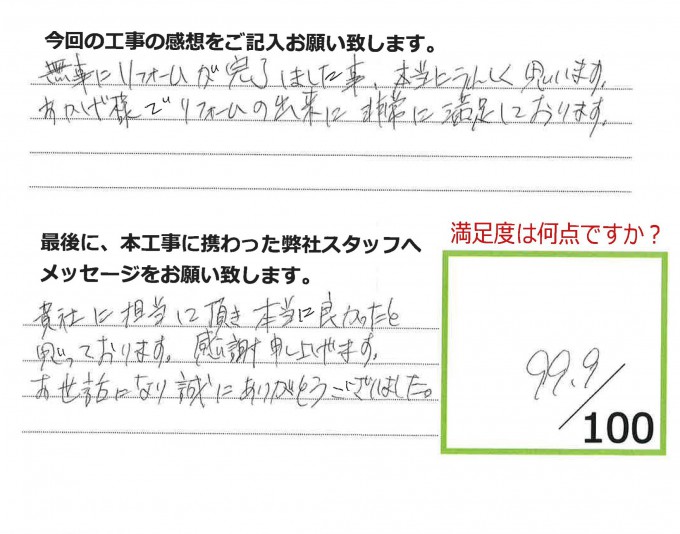 今回の工事の感想をご記入お願い致します。
無事にリフォームが完了しました事、本当にうれしく思います。
おかげ様でリフォームの出来に非常に満足しております。
最後に、本工事に携わった弊社スタッフへ
メッセージをお願い致します。
貴社に担当して頂き本当に良かったと
思っております。感謝申し上げます。
お世話になり誠にありがとうございました。
満足度は何点ですか？
99.9
100